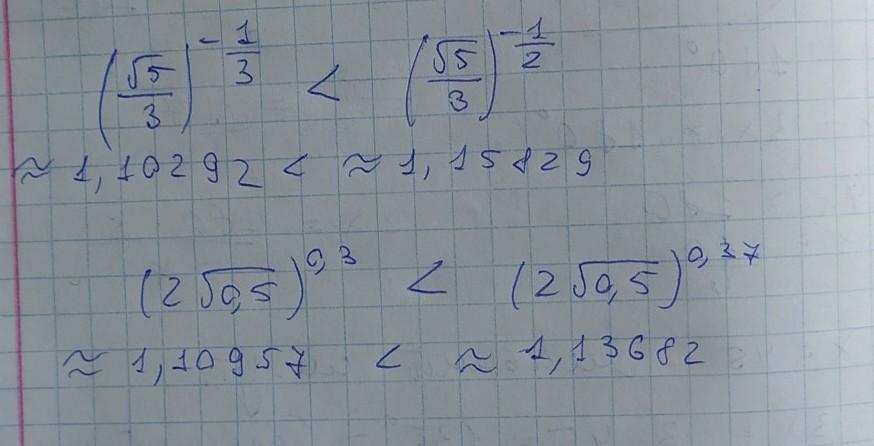 (√5/3)^(-1/3) < (√5/3)^(-1/2)
≈ 1,10292 < ≈ 1,15829
(2√0,5)^0,3 < (2√0,5)^0,37
≈ 1,10957 < ≈ 1,13682